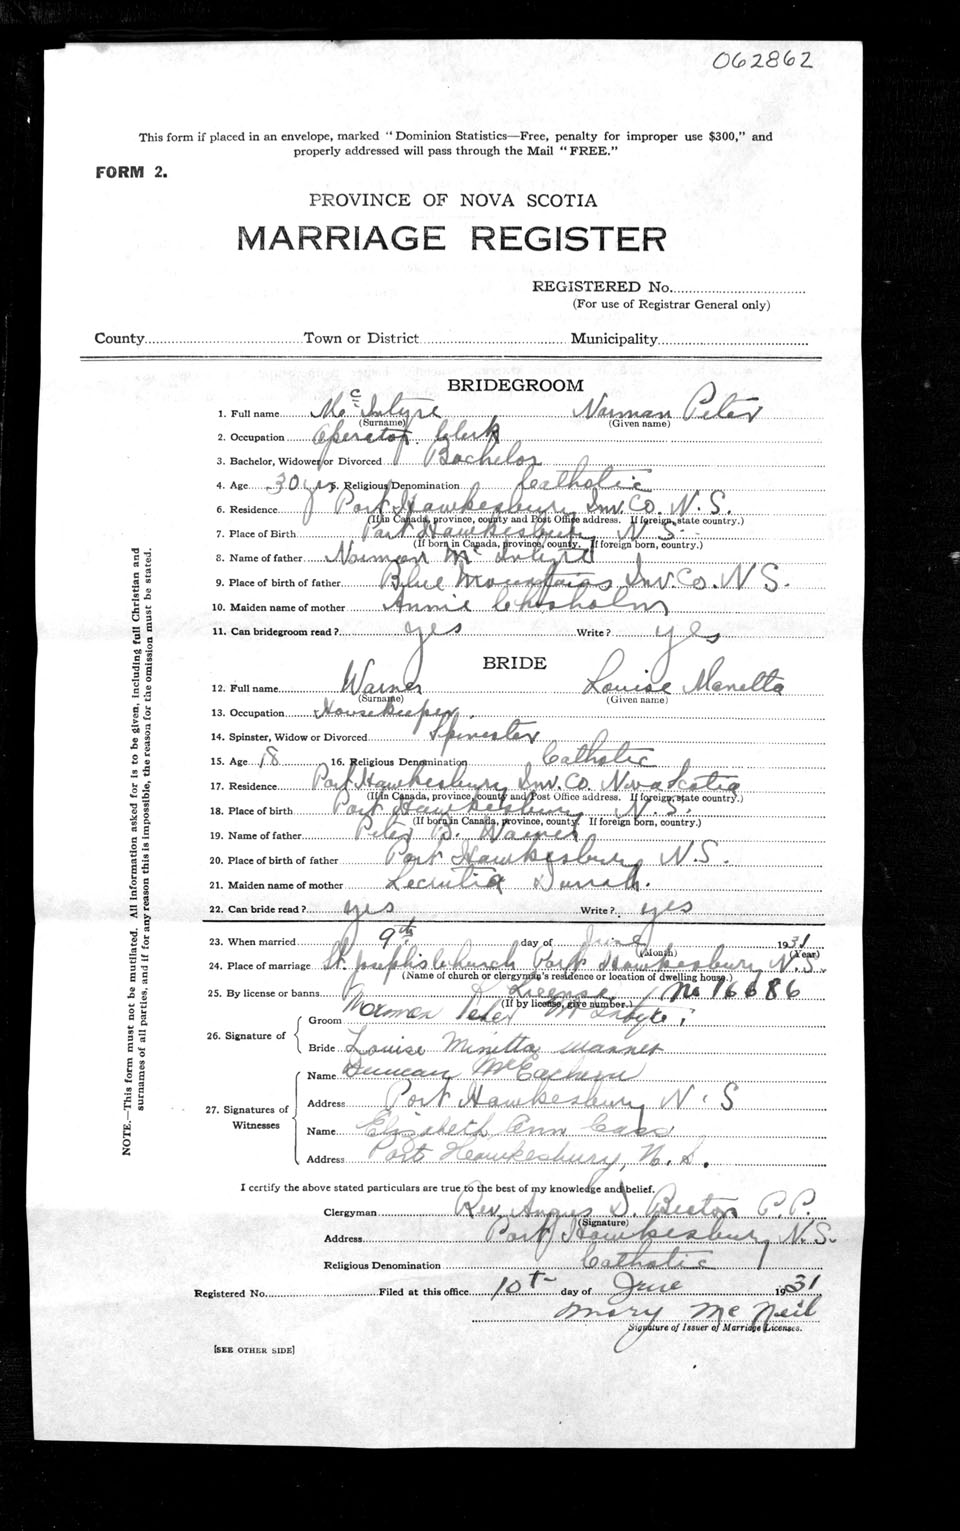 062862
This form if placed in an envelope, marked "Dominion Statistics—Free, penalty for improper use $300," and
properly addressed will pass through the Mail "FREE."
FORM 2.
PROVINCE OF NOVA SCOTIA
MARRIAGE REGISTER
REGISTERED No.
(For use of Registrar General only)
County Town or District Municipality
BRIDEGROOM
1. Full name McIntyre Norman Peter
(Surname) (Given name)
2. Occupation Operator Clerk
3. Bachelor, Widower or Divorced Bachelor
4. Age 30 yrs 5. Religious Denomination Catholic
6. Residence Port Hawkesbury Inv. Co. N.S.
(If in Canada, province, county and Post Office address. If foreign, state country.)
7. Place of Birth Port Hawkesbury N.S.
(If born in Canada, province, county. If foreign born, country.)
8. Name of father Norman McIntyre
9. Place of birth of father Blue Mountains Inv. Co. N.S.
10. Maiden name of mother Annie Chisholm
11. Can bridegroom read? yes Write? yes
BRIDE
12. Full name Warner Louise Manetta
(Surname) (Given name)
13. Occupation Housekeeper
14. Spinster, Widow or Divorced Spinster
15. Age 18 16. Religious Denomination Catholic
17. Residence Port Hawkesbury Inv. Co. Nova Scotia
(If in Canada, province, county and Post Office address. If foreign, state country.)
18. Place of birth Port Hawkesbury N.S.
(If born in Canada, province, county. If foreign born, country.)
19. Name of father Peter B. Warner
20. Place of birth of father Port Hawkesbury N.S.
21. Maiden name of mother
22. Can bride read? yes Write? yes
23. When married 9th day of June 1931
(Month) (Year)
24. Place of marriage St. Joseph's Church Port Hawkesbury N.S.
(Name of church or clergyman's residence or location of dwelling house.)
25. By license or banns License No 16686
(If by license, give number.)
26. Signature of
Groom Norman Peter McIntyre
Bride Louise Minetta Warner
27. Signatures of Witnesses
Name Duncan McEachern
Address Port Hawkesbury N.S
Name Elizabeth Ann
Address Port Hawkesbury, N.S.
I certify the above stated particulars are true to the best of my knowledge and belief.
Clergyman Rev. Angus D. Beaton P.P.
(Signature)
Address Port Hawkesbury N.S.
Religious Denomination Catholic
Registered No. Filed at this office 10th day of June 1931
Mary McNeil
Signature of Issuer of Marriage Licenses.
[SEE OTHER SIDE]
NOTE.—This form must not be mutilated. All information asked for is to be given, including full Christian and
surnames of all parties, and if for any reason this is impossible, the reason for the omission must be stated.